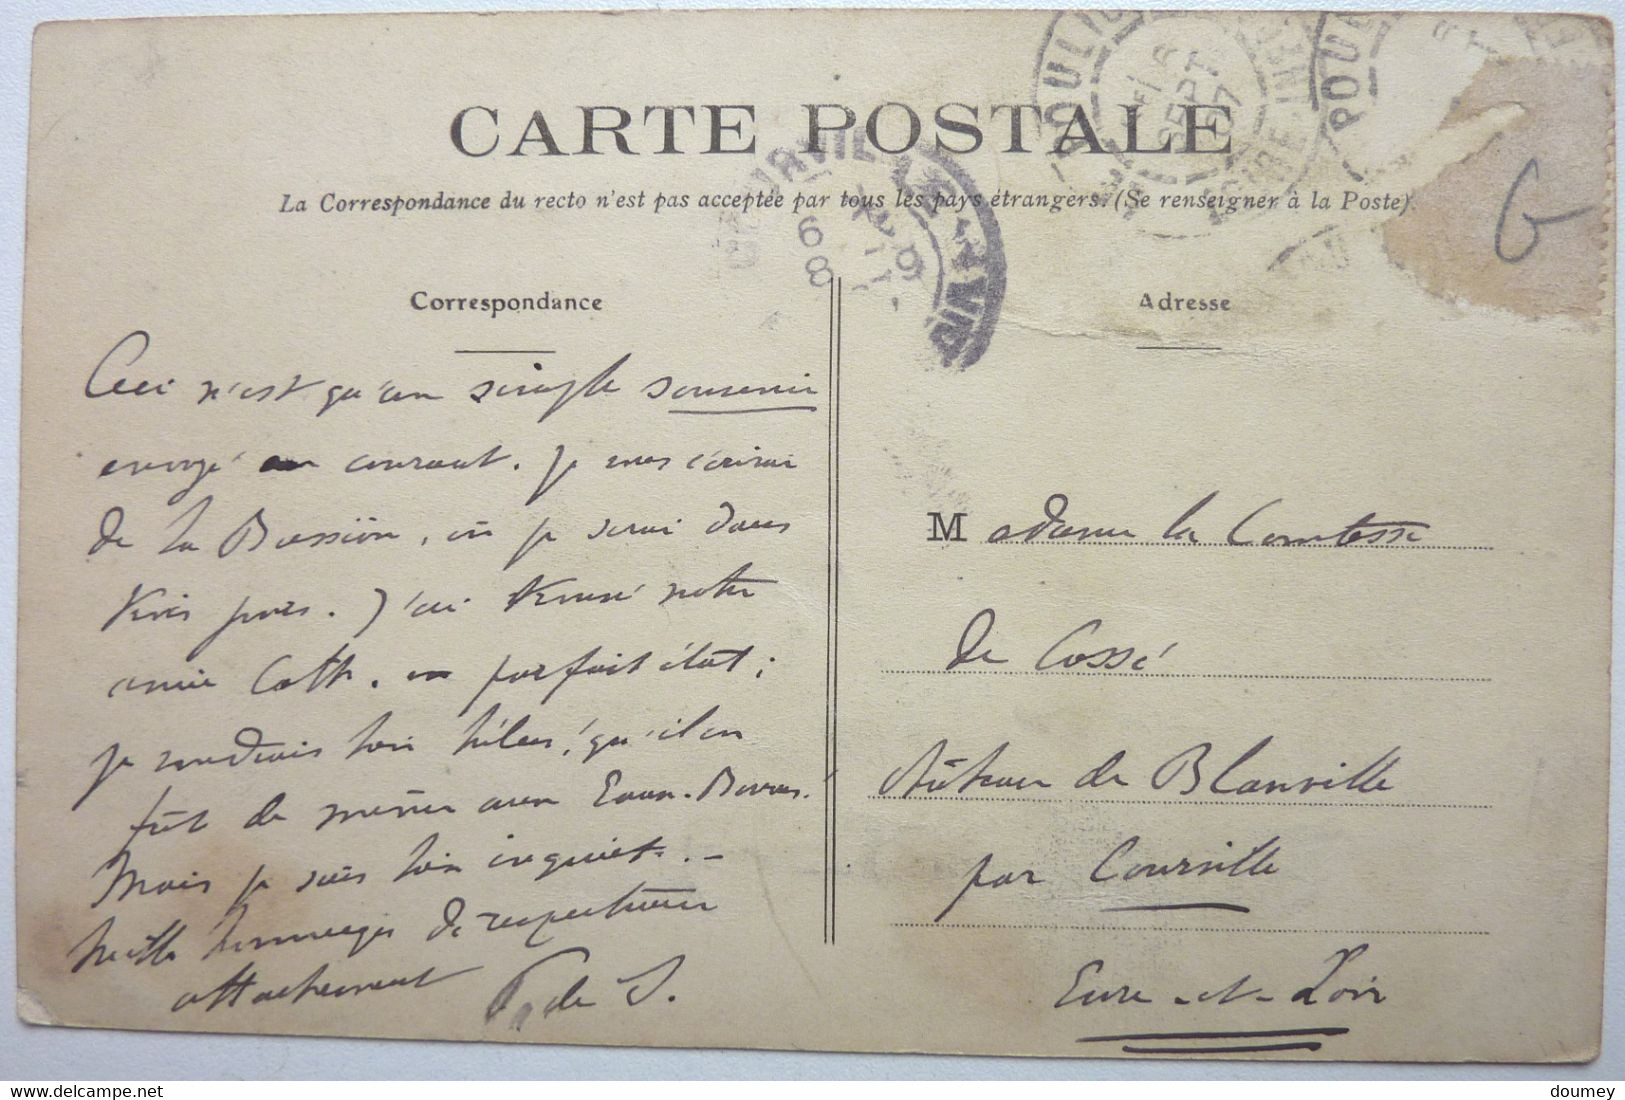 CARTE POSTALE
La Correspondance du recto n'est pas acceptée par tous les pays étrangers. (Se renseigner à la Poste)
Correspondance
Ceci n'est qu'un simple souvenir
envoyé en courant. Je vous écrirai
de la , où je serai dans
trois jours. J'ai trouvé notre
amie Cath. en parfait état ;
je voudrais bien hélas! qu'il en
fût de même aux Eaux-Bonnes.
Mais je suis bien inquiet. -
Mille hommages de respectueux
attachement
de S.
Adresse
Madame la Comtesse
de Cossé
Château de Blanville
par Courville
Eure-et-Loir
POULIG
6
SEPT
07
POUL
6
68
G
www.delcampe.net
doumey